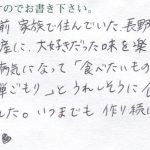 すのでお書き下さい。
前 家族で住んでいた、長野
産に、大好きだった味を楽
病気になって「食べたいもの
巣ごもり」とうれしそうに
た。いつまでも作り続け